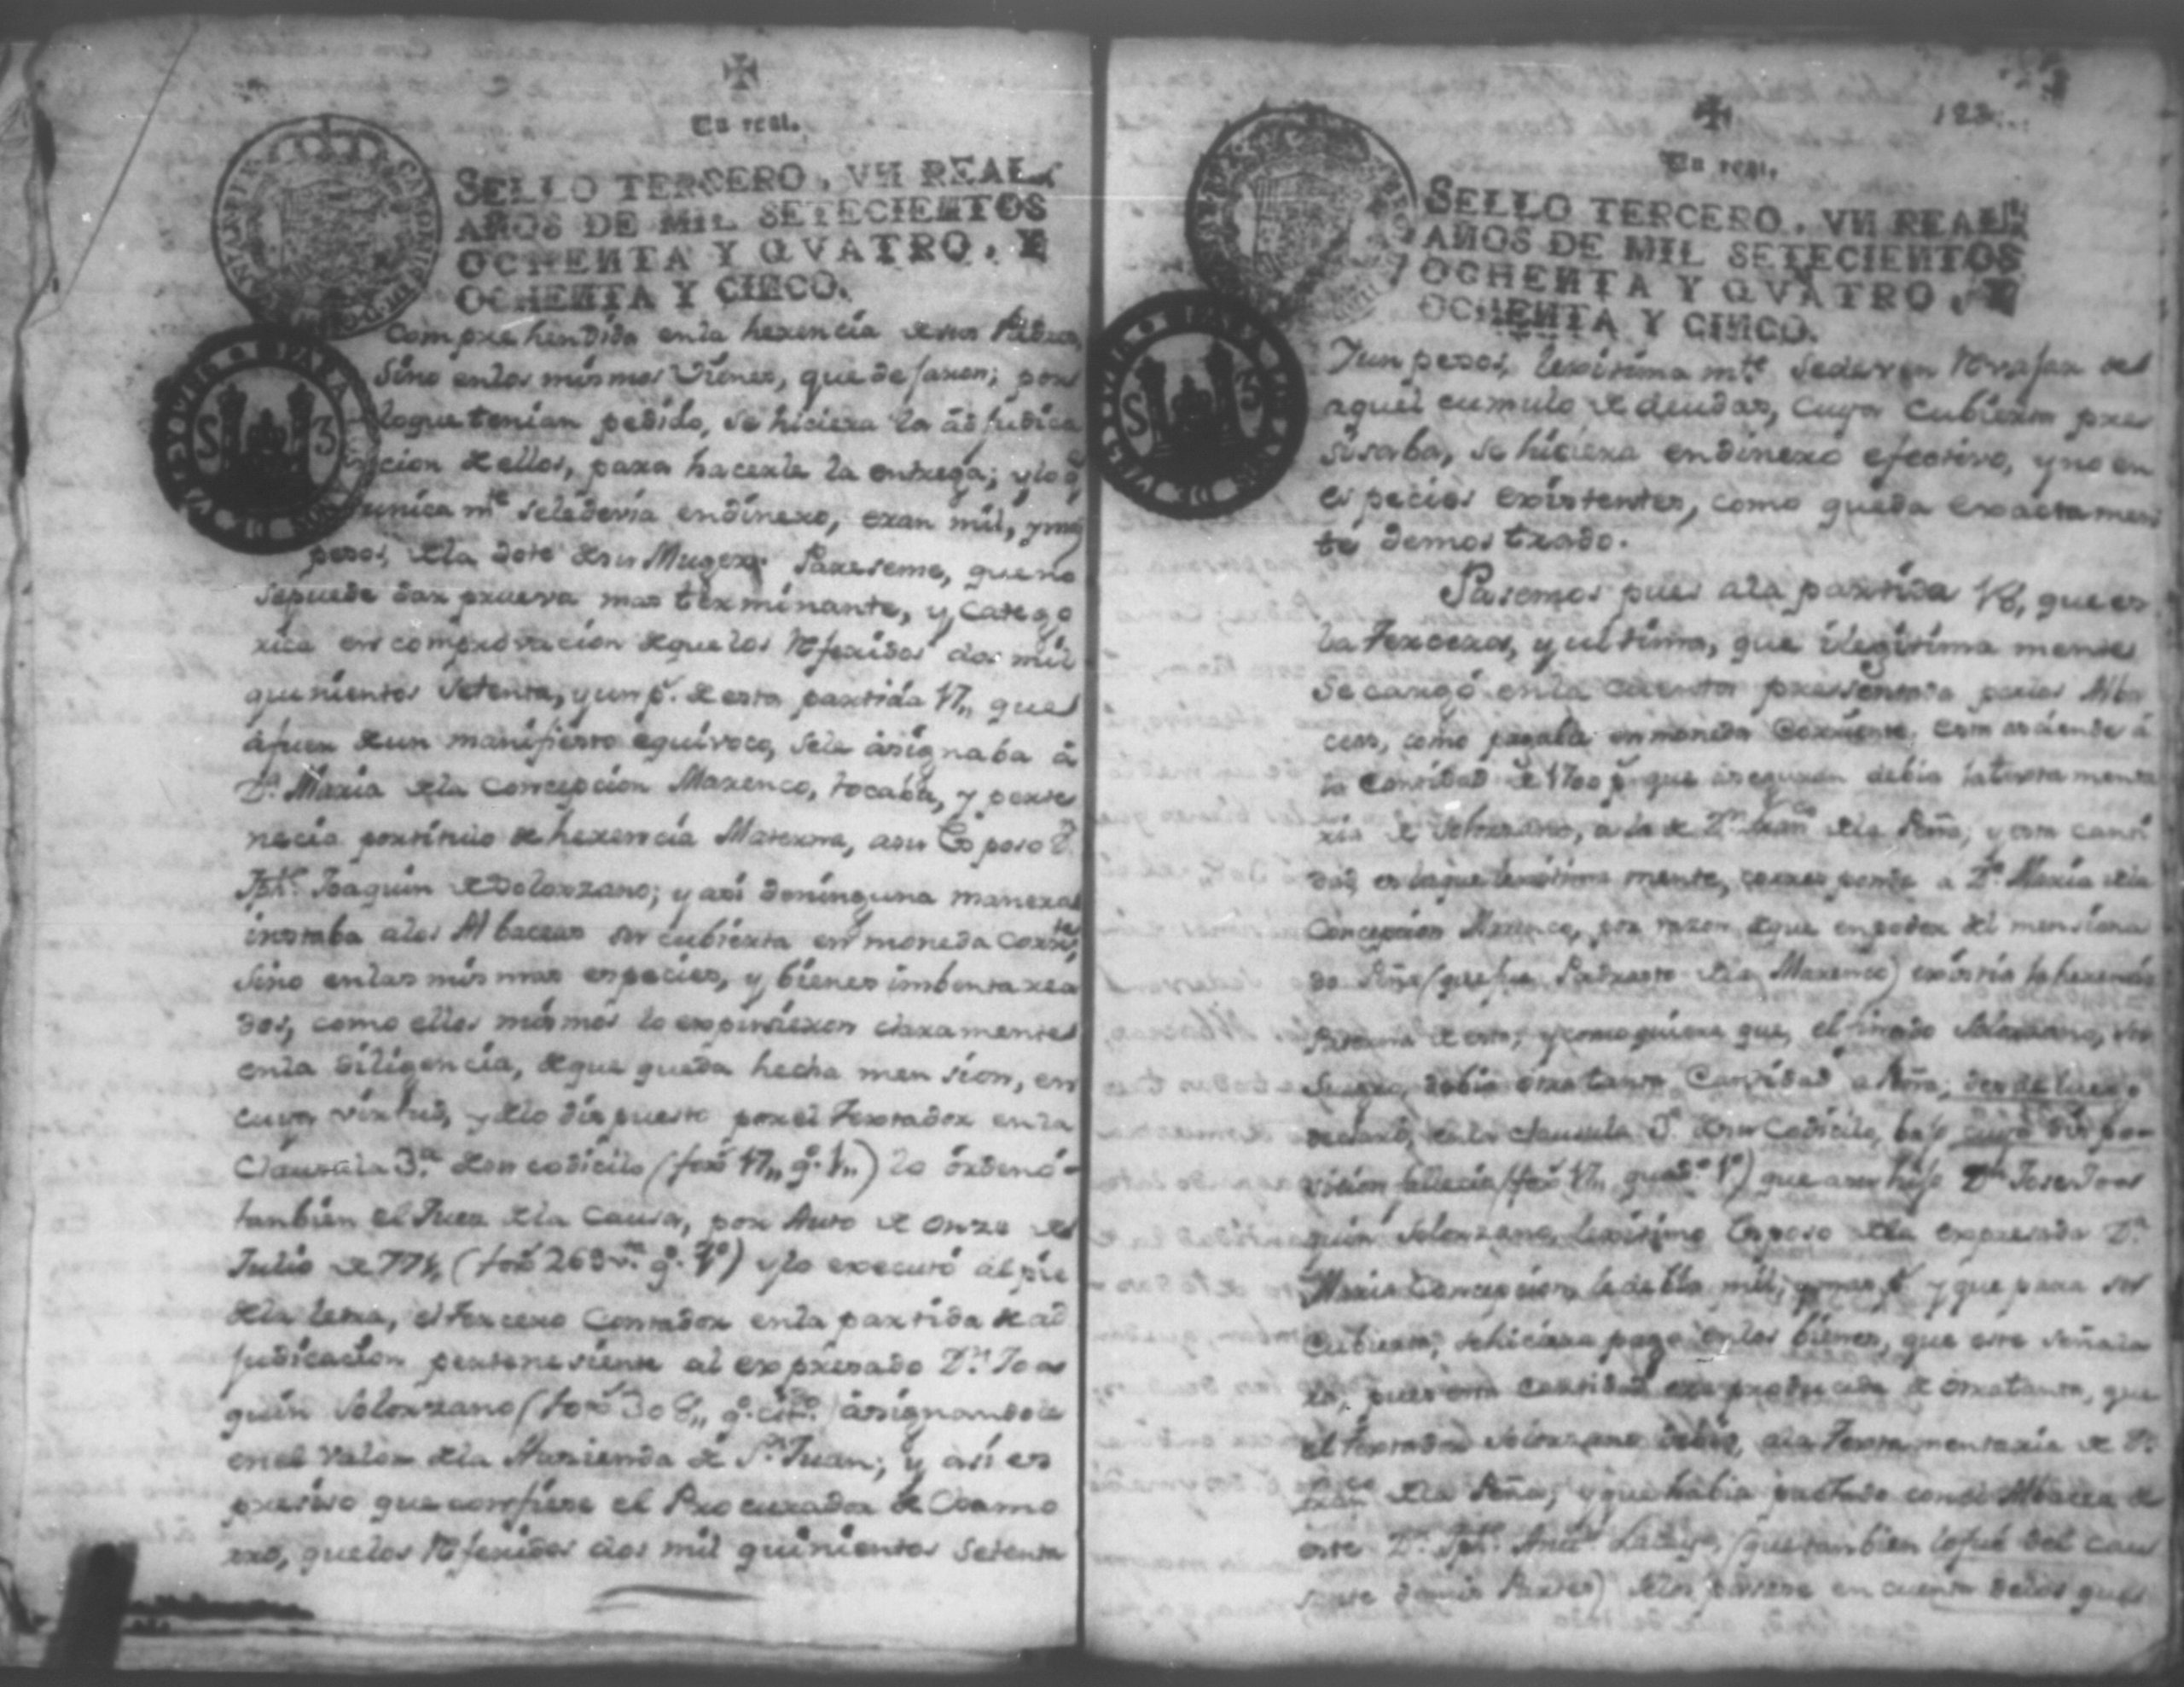 Un real.
SELLO TERCERO, VN REAL
AÑOS DE MIL SETECIENTOS
OCHENTA Y QVATRO, Y
OCHENTA Y CINCO.
Comprehendida en la herencia de sus Padres,
Sino en los mismos vienes, que dejaron; por
loque tenian pedido, se hiciera la adjudica
cion de ellos, para hacerle la entrega; y lo q.e
unica m.te sele devia en dinero, eran mil, y mas
pesos, de la dote de su Muger. Pareseme, que no
sepuede dar prueva mas terminante, y catego
rica en comprovacion de que los referidos dos mil
quinientos setenta, y un p.s de esta partida 17,, que
á fuer de un manifiesto equivoco, sele asignaba á
D.a Maria de la Concepcion Marenco, tocaba, y perte
necia por titulo de herencia Materna, a su Esposo D.
Jph. Joaquin de Solorzano; y asi de ninguna manera
instaba a los Albaceas su cubierta en moneda corr.te,
Sino en las mismas especies, y bienes imbentarea
dos, como ellos mismos lo expusieron claramente
en la diligencia, de que queda hecha mension, en
cuya virtud, y de lo dispuesto por el Testador en la
Clausula 3.a de su codicilo (fox.s 17,, q.o 1,,) lo ordenó
tanbien el Juez de la causa, por Auto de onze de
Julio de 774 (fox.s 269 v.ta q.o 1.o) y lo executó al pie
de la letra, el tercero Contador en la partida de ad
judicacion pertenesiente al expresado D.n Joa
quin Solorzano (fox.s 308,, q.o cit.do) asignandole
en el valor de la Hazienda de S.n Juan; y asi es
presiso que confiese el Procurador de Chamo
rro, que los referidos dos mil quinientos setenta
Un real.
SELLO TERCERO, VN REAL
AÑOS DE MIL SETECIENTOS
OCHENTA Y QVATRO, Y
OCHENTA Y CINCO.
Y un pesos, lexitima m.te se deven rebajar del
aquel cumulo de deudas, cuya cubierta pre
sisaba, se hiciera en dinero efectivo, y no en
especies existentes, como queda exactamen
te demostrado.
Pasemos pues a la partida 18, que es
la Tercera, y ultima, que ilegitima mente
se cargó en la cuenta pressentada por los Alba
ceas, como pagable en moneda corriente. Esta asciende á
la Cantidad de 1700 p.s que aseguran debia la testamenta
ria de Solorzano, a la de D.n Fran.co de la Peña; y esta canti
dad, es la que lexitima mente, corresponde a D.a Maria de la
Concepcion Marenco, por razon de que en poder del mensiona
do Peña (que fue Padrasto de la Marenco) existia la herencia
Paterna de esta; y como quiera que, el finado Solorzano, su
Suegro, debia otra tanta Cantidad a Peña; desde luego
declaró, en la clausula 3.a de su Codicilo, bajo cuya dispo-
sicion fallecio (fox.s 17,, quad.o 1.o) que a su hijo D.n Jose Joa
quin Solorzano, lexitimo Esposo de la expresada D.a
Maria Concepcion, le debia mil, y mas p.s y que para ser
Cubierto, se hiciera pago en los bienes, que este señala
ra, pues esta cantidad era producida de otra tanta, que
el Testador Solorzano debia, a la Testamentaria de D.n
Fran.co de la Peña; y que habia pactado con el Albacea de
este D.n Jph. Ant.o Lacayo, (que tanbien lo fué del cau
sante de mis Partes) de los pasase en cuenta de los que